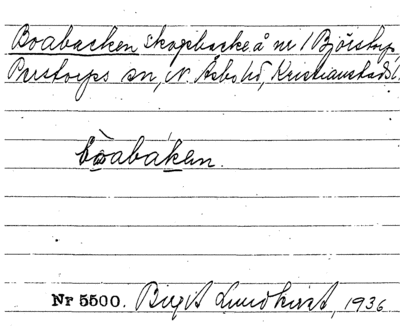 Boabacken skogsbacke å nr 1 Björstorp,
Perstorps sn, N. Åsbo hd, Kristianstads l.
bòabaken.
Nr 5500. Birgit Lundkvist, 1936